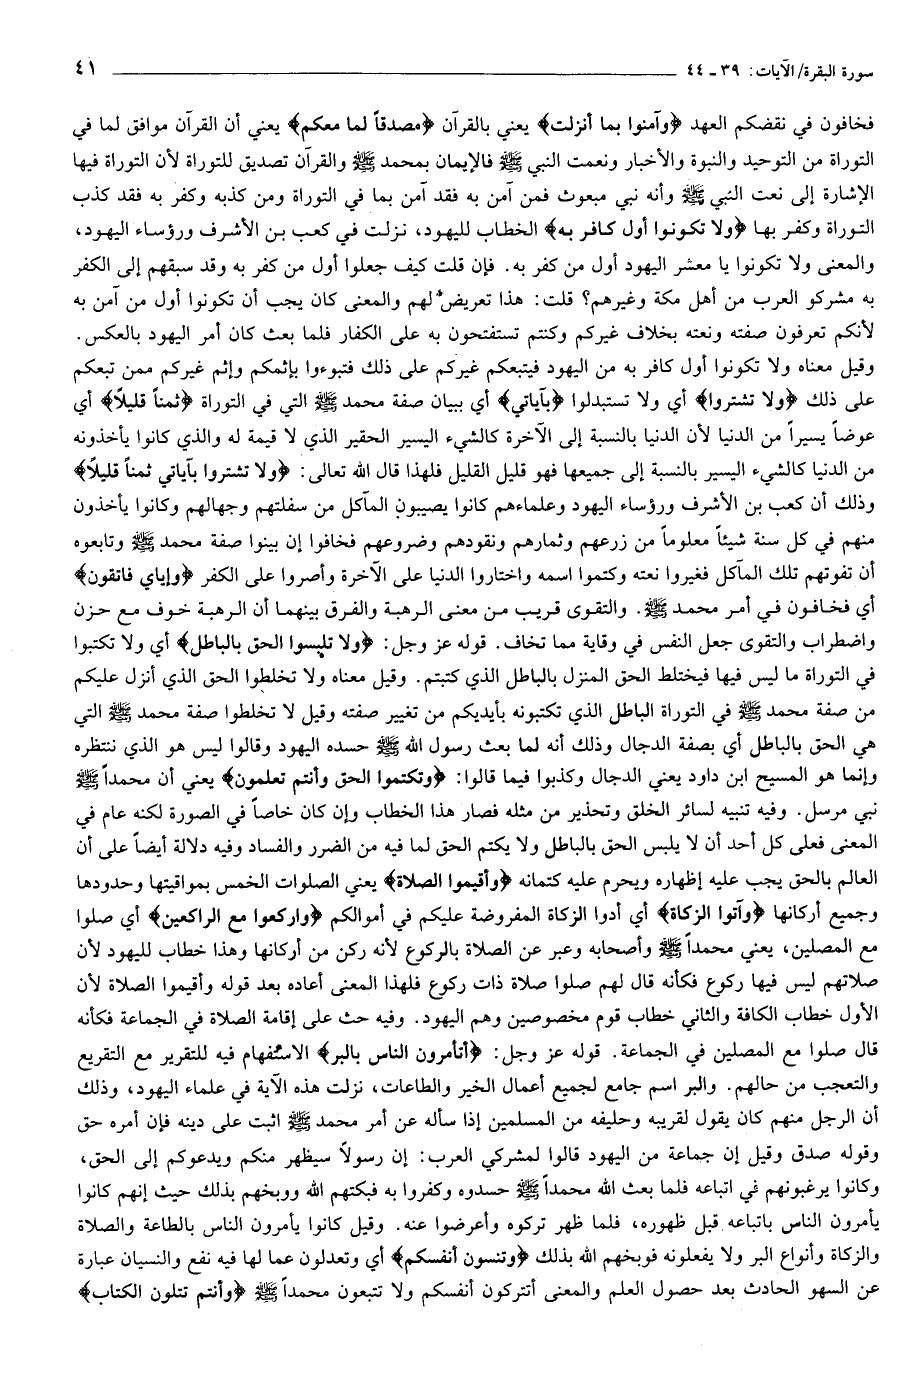 سورة البقرة/ الآيات: ٣٩ ـ ٤٤ ٤١
فخافون في نقضكم العهد ﴿وآمنوا بما أنزلت﴾ يعني بالقرآن ﴿مصدقاً لما معكم﴾ يعني أن القرآن موافق لما في
التوراة من التوحيد والنبوة والأخبار ونعمت النبي ﷺ فالإيمان بمحمد ﷺ والقرآن تصديق للتوراة لأن التوراة فيها
الإشارة إلى نعت النبي ﷺ وأنه نبي مبعوث فمن آمن به فقد آمن بما في التوراة ومن كذبه وكفر به فقد كذب
التوراة وكفر بها ﴿ولا تكونوا أول كافر به﴾ الخطاب لليهود، نزلت في كعب بن الأشرف ورؤساء اليهود،
والمعنى ولا تكونوا يا معشر اليهود أول من كفر به. فإن قلت كيف جعلوا أول من كفر به وقد سبقهم إلى الكفر
به مشركو العرب من أهل مكة وغيرهم؟ قلت: هذا تعريض لهم والمعنى كان يجب أن تكونوا أول من آمن به
لأنكم تعرفون صفته ونعته بخلاف غيركم وكنتم تستفتحون به على الكفار فلما بعث كان أمر اليهود بالعكس.
وقيل معناه ولا تكونوا أول كافر به من اليهود فيتبعكم غيركم على ذلك فتبوءوا بإثمكم وإثم غيركم ممن تبعكم
على ذلك ﴿ولا تشتروا﴾ أي ولا تستبدلوا ﴿بآياتي﴾ أي ببيان صفة محمد ﷺ التي في التوراة ﴿ثمناً قليلاً﴾ أي
عوضاً يسيراً من الدنيا لأن الدنيا بالنسبة إلى الآخرة كالشيء اليسير الحقير الذي لا قيمة له والذي كانوا يأخذونه
من الدنيا كالشيء اليسير بالنسبة إلى جميعها فهو قليل القليل فلهذا قال الله تعالى: ﴿ولا تشتروا بآياتي ثمناً قليلاً﴾
وذلك أن كعب بن الأشرف ورؤساء اليهود وعلماءهم كانوا يصيبون المآكل من سفلتهم وجهالهم وكانوا يأخذون
منهم في كل سنة شيئاً معلوماً من زرعهم وثمارهم ونقودهم وضروعهم فخافوا إن بينوا صفة محمد ﷺ وتابعوه
أن تفوتهم تلك المآكل فغيروا نعته وكتموا اسمه واختاروا الدنيا على الآخرة وأصروا على الكفر ﴿وإياي فاتقون﴾
أي فخافون في أمر محمد ﷺ. والتقوى قريب من معنى الرهبة والفرق بينهما أن الرهبة خوف مع حزن
واضطراب والتقوى جعل النفس في وقاية مما تخاف. قوله عز وجل: ﴿ولا تلبسوا الحق بالباطل﴾ أي ولا تكتبوا
في التوراة ما ليس فيها فيختلط الحق المنزل بالباطل الذي كتبتم. وقيل معناه ولا تخلطوا الحق الذي أنزل عليكم
من صفة محمد ﷺ في التوراة الباطل الذي تكتبونه بأيديكم من تغيير صفته وقيل لا تخلطوا صفة محمد ﷺ التي
هي الحق بالباطل أي بصفة الدجال وذلك أنه لما بعث رسول الله ﷺ حسده اليهود وقالوا ليس هو الذي ننتظره
وإنما هو المسيح ابن داود يعني الدجال وكذبوا فيما قالوا: ﴿وتكتموا الحق وأنتم تعلمون﴾ يعني أن محمداً ﷺ
نبي مرسل. وفيه تنبيه لسائر الخلق وتحذير من مثله فصار هذا الخطاب وإن كان خاصاً في الصورة لكنه عام في
المعنى فعلى كل أحد أن لا يلبس الحق بالباطل ولا يكتم الحق لما فيه من الضرر والفساد وفيه دلالة أيضاً على أن
العالم بالحق يجب عليه إظهاره ويحرم عليه كتمانه ﴿وأقيموا الصلاة﴾ يعني الصلوات الخمس بمواقيتها وحدودها
وجميع أركانها ﴿وآتوا الزكاة﴾ أي أدوا الزكاة المفروضة عليكم في أموالكم ﴿واركعوا مع الراكعين﴾ أي صلوا
مع المصلين، يعني محمداً ﷺ وأصحابه وعبر عن الصلاة بالركوع لأنه ركن من أركانها وهذا خطاب لليهود لأن
صلاتهم ليس فيها ركوع فكأنه قال لهم صلوا صلاة ذات ركوع فلهذا المعنى أعاده بعد قوله وأقيموا الصلاة لأن
الأول خطاب الكافة والثاني خطاب قوم مخصوصين وهم اليهود. وفيه حث على إقامة الصلاة في الجماعة فكأنه
قال صلوا مع المصلين في الجماعة. قوله عز وجل: ﴿أتأمرون الناس بالبر﴾ الاستفهام فيه للتقرير مع التقريع
والتعجب من حالهم. والبر اسم جامع لجميع أعمال الخير والطاعات، نزلت هذه الآية في علماء اليهود، وذلك
أن الرجل منهم كان يقول لقريبه وحليفه من المسلمين إذا سأله عن أمر محمد ﷺ اثبت على دينه فإن أمره حق
وقوله صدق وقيل إن جماعة من اليهود قالوا لمشركي العرب: إن رسولاً سيظهر منكم ويدعوكم إلى الحق،
وكانوا يرغبونهم في اتباعه فلما بعث الله محمداً ﷺ حسدوه وكفروا به فبكتهم الله ووبخهم بذلك حيث إنهم كانوا
يأمرون الناس باتباعه قبل ظهوره، فلما ظهر تركوه وأعرضوا عنه. وقيل كانوا يأمرون الناس بالطاعة والصلاة
والزكاة وأنواع البر ولا يفعلونه فوبخهم الله بذلك ﴿وتنسون أنفسكم﴾ أي وتعدلون عما لها فيه نفع والنسيان عبارة
عن السهو الحادث بعد حصول العلم والمعنى أتتركون أنفسكم ولا تتبعون محمداً ﷺ ﴿وأنتم تتلون الكتاب﴾